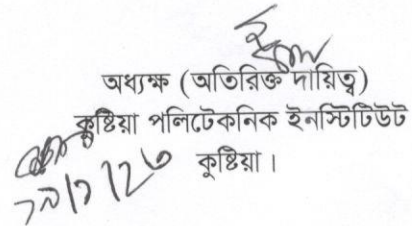 অধ্যক্ষ (অতিরিক্ত দায়িত্ব)
কুষ্টিয়া পলিটেকনিক ইনস্টিটিউট
কুষ্টিয়া।